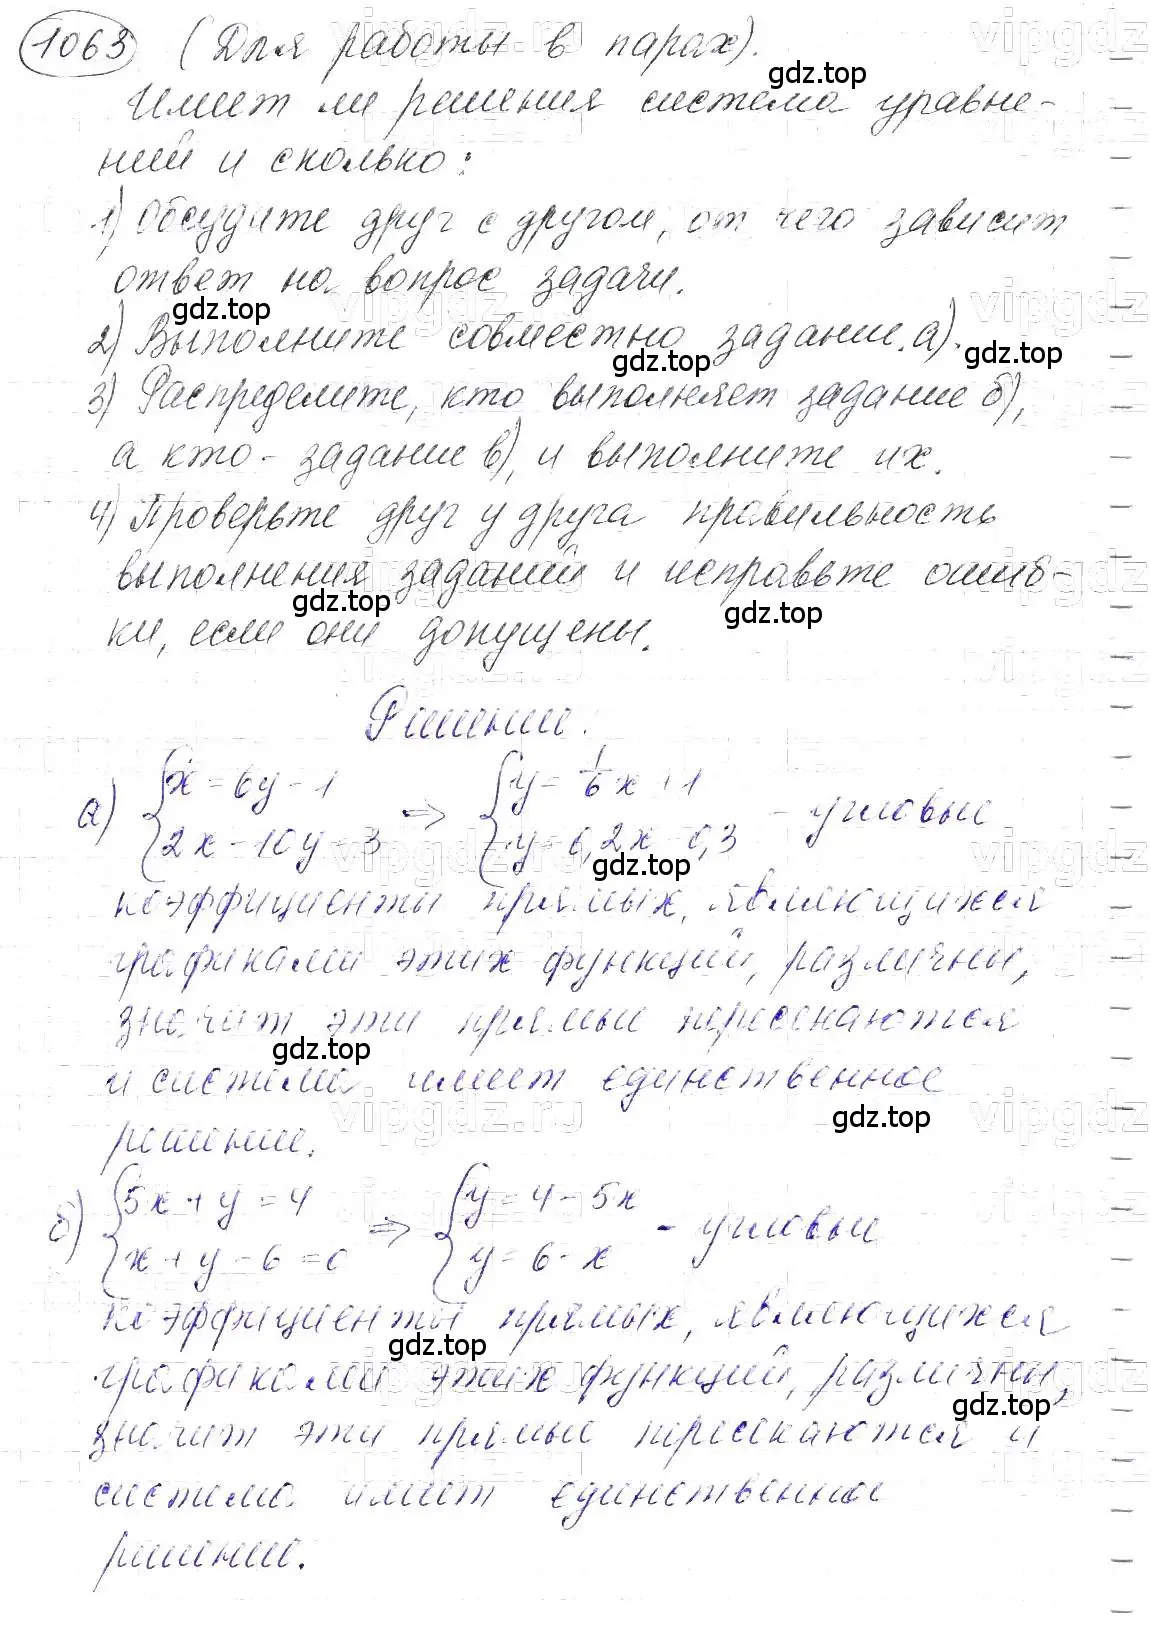 1063 (Для работы в парах).
gdz.top
Имеет ли решения система уравне-
ний и сколько:
1) Обсудите друг с другом, от чего зависит
ответ на вопрос задачи.
gdz.top
2) Выполните совместно задание а).
gdz.top gdz.top
3) Распределите, кто выполняет задание б),
а кто - задание в), и выполните их.
4) Проверьте друг у друга правильность
выполнения заданий и исправьте ошиб-
gdz.top gdz.top
ки, если они допущены.
Решение:
а) { x = 6y - 1 => { y = 1/6 x + 1 - угловые
2x - 10y = 3 y = 0,2x - 0,3
gdz.top
коэффициенты прямых, являющихся
графиками этих функций, различны,
значит эти прямые пересекаются
gdz.top
и система имеет единственное
gdz.top
решение.
б) { 5x + y = 4 => { y = 4 - 5x - угловые
x + y - 6 = 0 y = 6 - x
коэффициенты прямых, являющихся
gdz.top
графиками этих функций, различны,
gdz.top
значит эти прямые пересекаются и
система имеет единственное
решение.